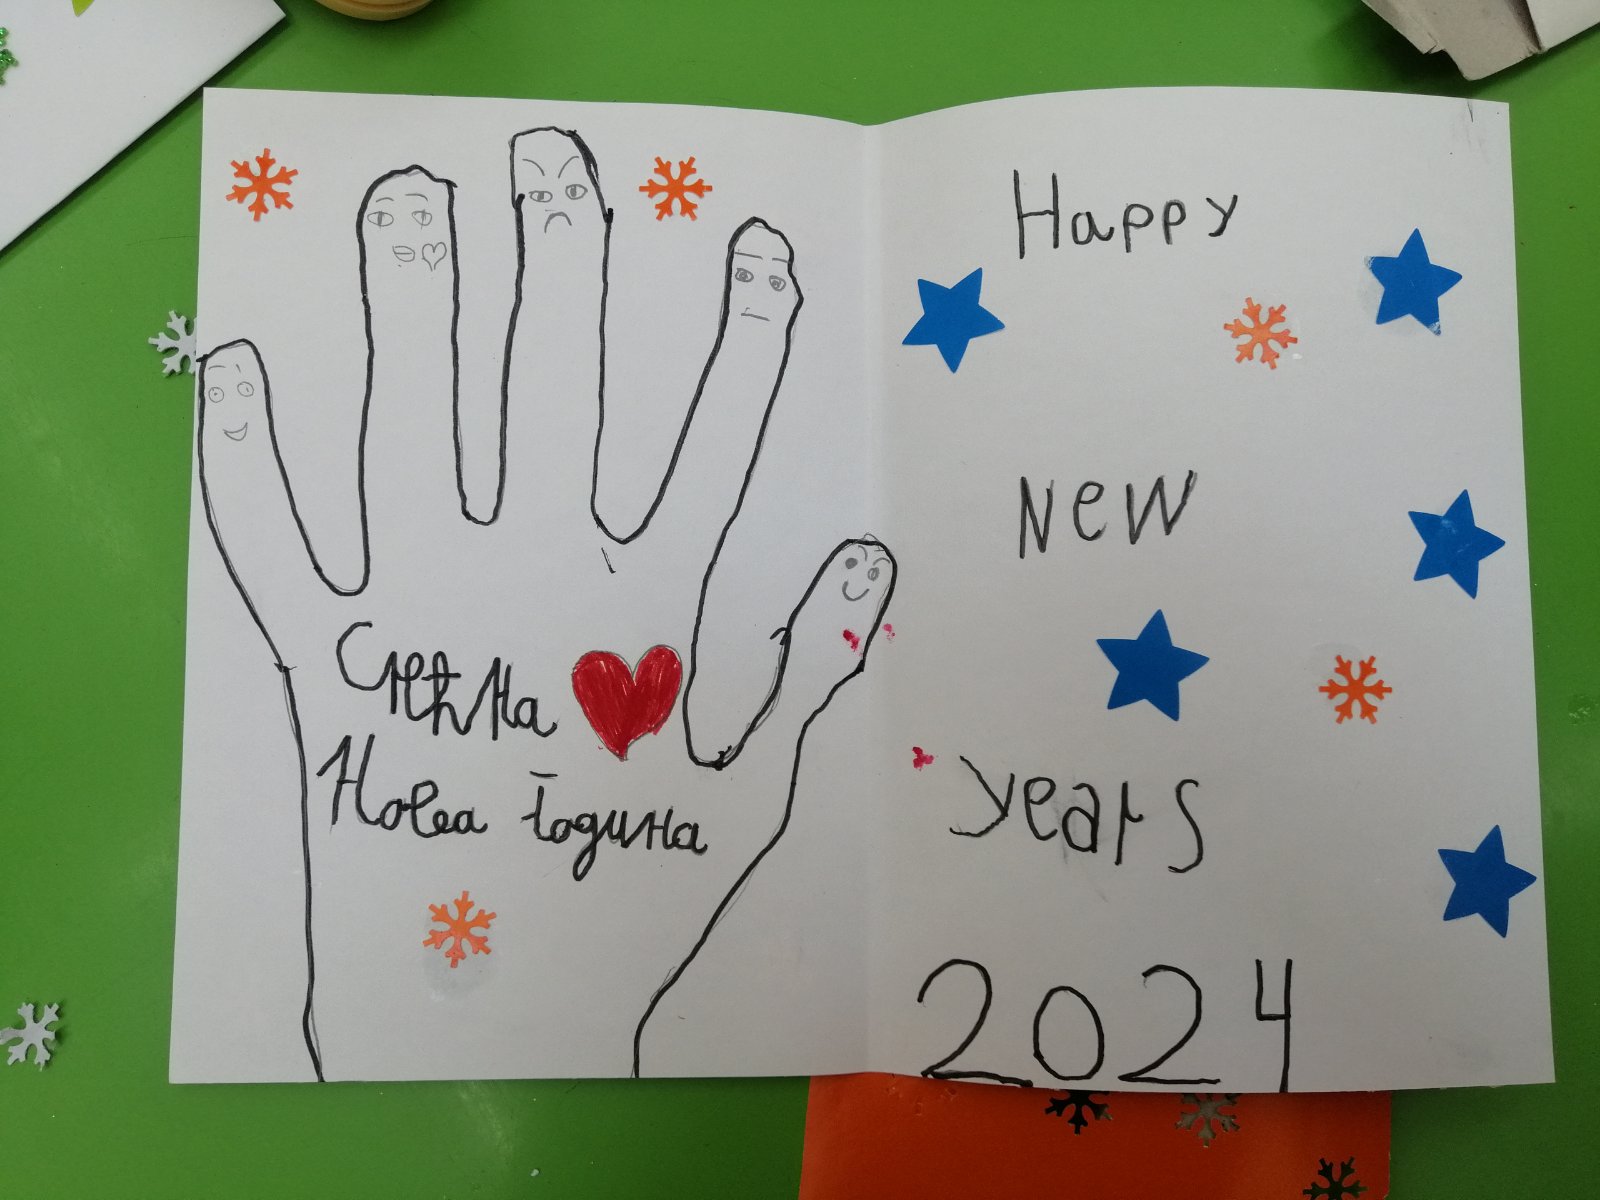 Срећна
Нова година
Happy
New
years
2024